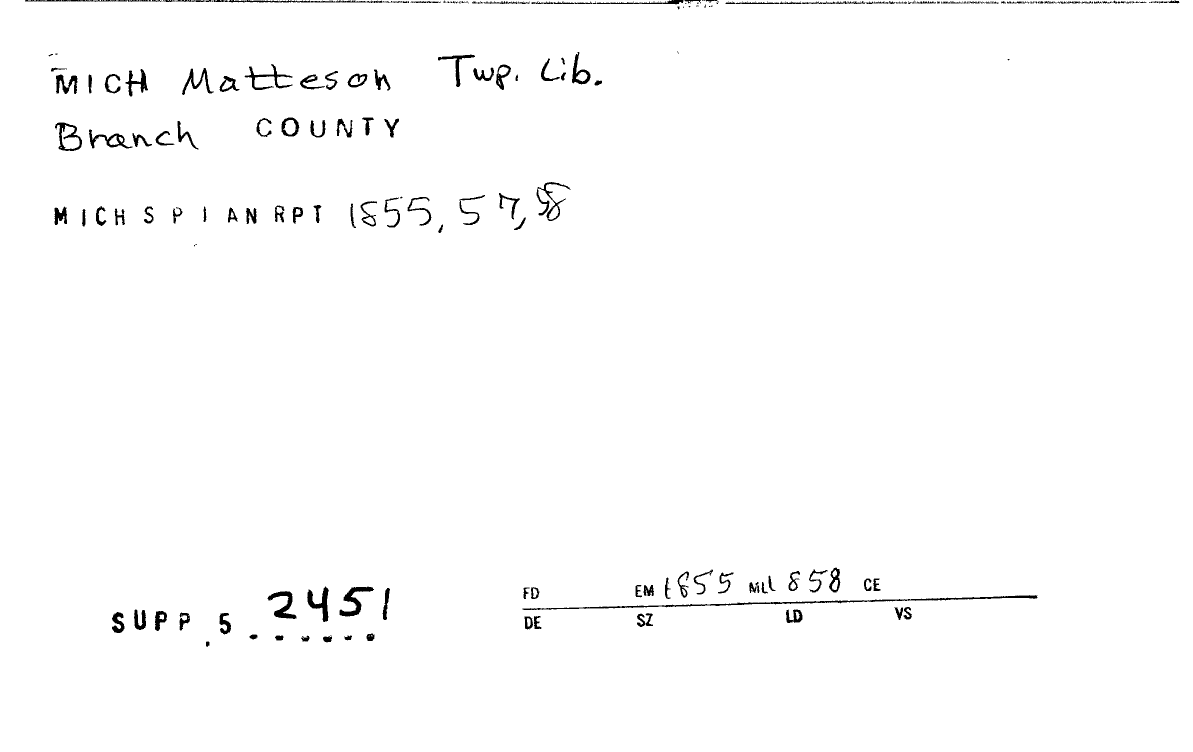 MICH Matteson Twp. Lib.
Branch COUNTY
MICH S P I AN RPT 1855, 57, 58
SUPP. 5 ...... 2451
FD EM 1855 ML 1858 CE
DE SZ LD VS